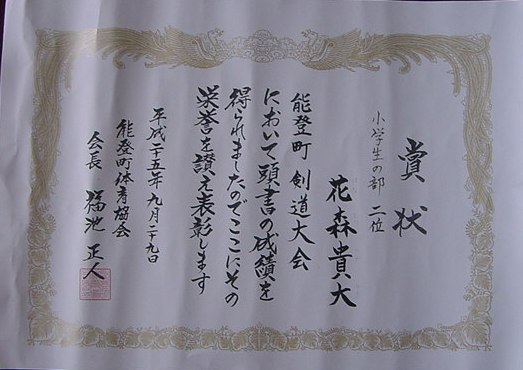 賞状
小学生の部 二位
花森貴大
能登町 剣道大会
において頭書の成績を
得られましたのでここにその
栄誉を讃え表彰します
平成二十五年九月二十九日
能登町体育協会
会長 福池正人